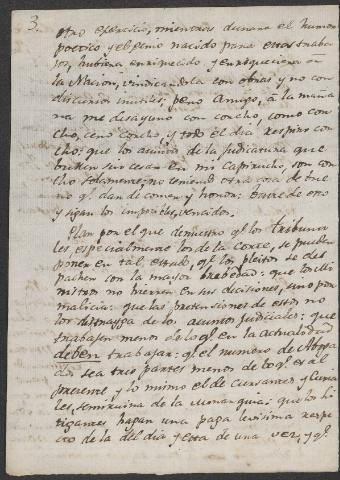 3.
otro exercicio, mientras durara el humor
poetico y el genio nacido para estos traba
jos, hubiera enriquecido y enriqueciera a
la Nacion, vindicandola con obras y no con
discursos inutiles; pero Amigo, à la maña
na me desayuno con corcho, como cor
cho, ceno corcho, y todo el dia respiro cor
cho: que los asuntos de la Judicatura que
bullen sin cesar en mi Capirucho, son cor
cho solamente; no teniendo otra cosa de bue
no q.e dan de comer y honor:
y sigan los impresos, vencidos.
Plan por el que demuestro q.e los tribuna
les especialmente los de la Corte, se pueden
poner en tal estado, q.e los pleitos se des
pachen con la mayor brebedad: que los Mi
nistros no hierren en sus decisiones, sino por
malicia: que las pretensiones de estos no
los distrayga de los asuntos judiciales: que
trabajen menos de lo q.e en la actualidad
deben trabajar: q.e el numero de Aboga
dos sea tres partes menos de lo q.e es al
presente, y lo mismo el de cursantes y Curia
les, semiruina de la Monarquia: que los li
tigantes hagan una paga levisima respe
cto de la del dia y esta de una vez, y q.e